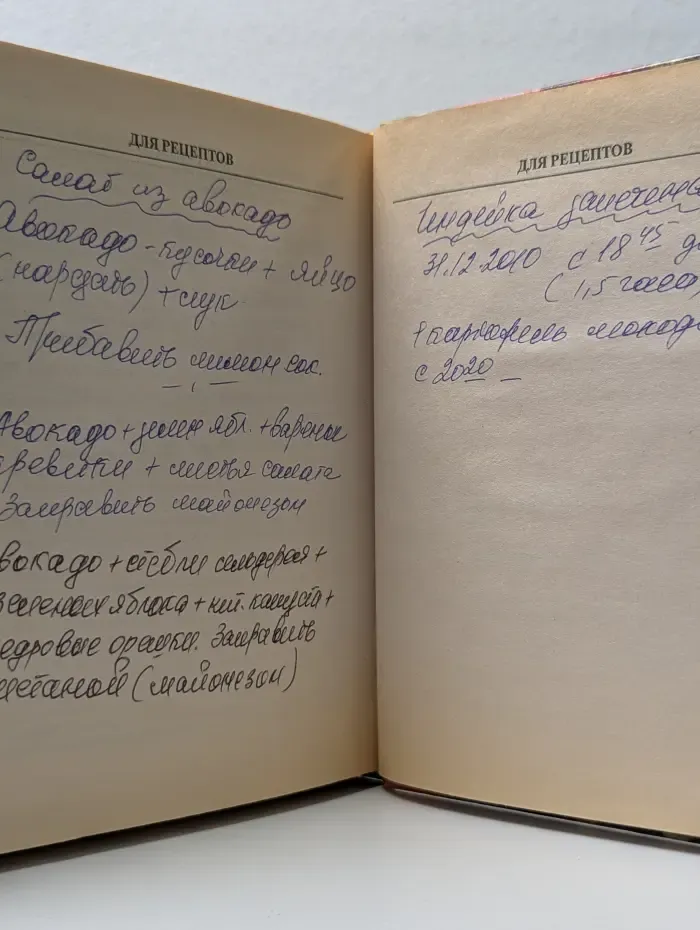 ДЛЯ РЕЦЕПТОВ
Салат из авокадо
Авокадо - кусочки + яйцо
(нардать) + лук
Прибавить лимон сок.
Авокадо + зелен ябл. + варёные
креветки + листья салата
Заправить майонезом
Авокадо + стебли сельдерея +
зеленых яблока + кит. капуста +
кедровые орешки. Заправить
сметаной (майонезом)
ДЛЯ РЕЦЕПТОВ
Индейка запечены
31.12.2010 с 18 45 до
(1,5 часа)
+ картофель молод
с 20 20